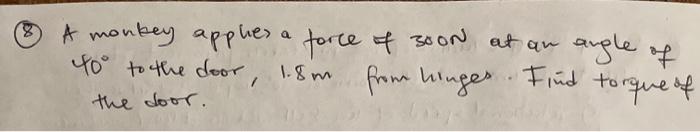 ⑧ A monkey applies a force of 300N at an angle of
40° to the door, 1.8m from hinges. Find torque of
the door.